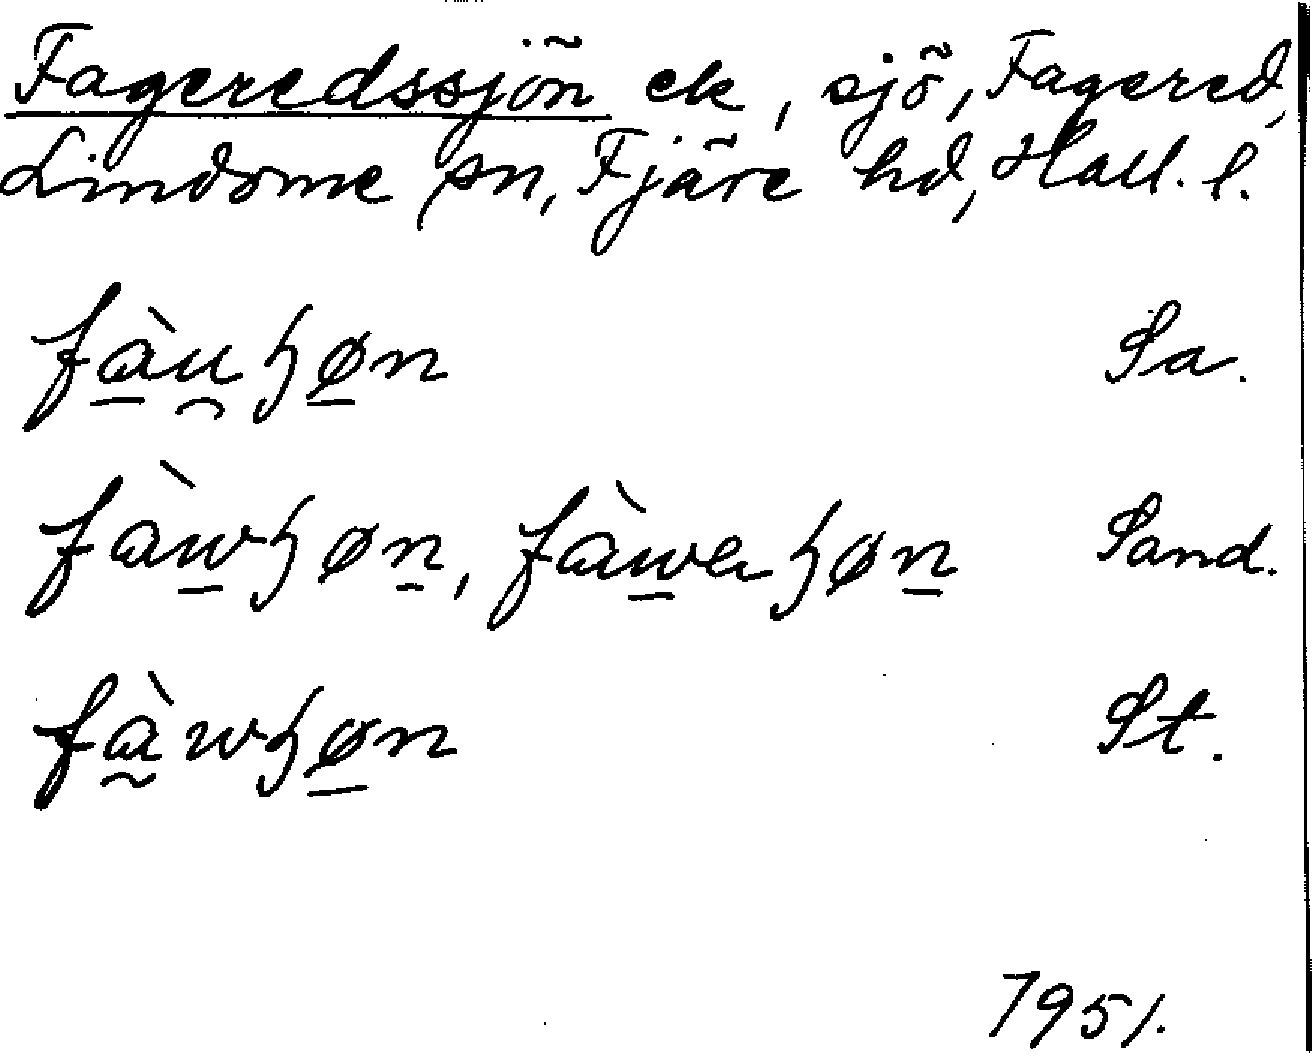 Fageredssjön ek, sjö, Fagered,
Lindome sn, Fjäre hd, Hall. l.
fàu̯ɧøn Sa.
fàwɧøn, fàwaɧøn Sand.
fàwɧøn St.
1951.